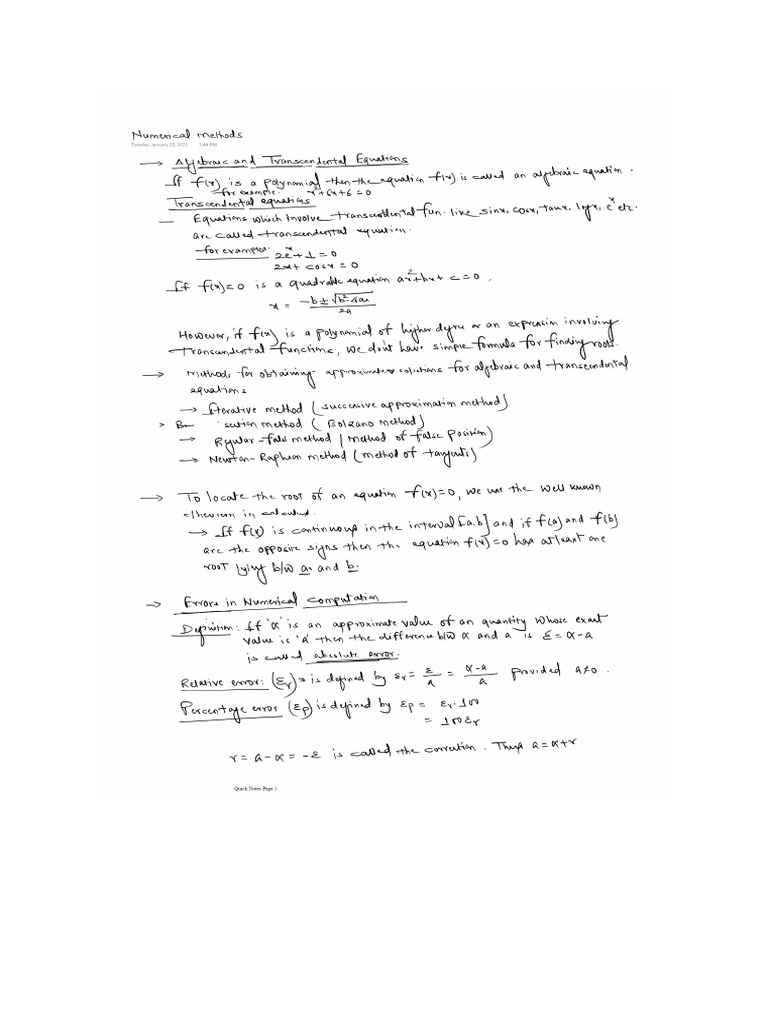 Numerical methods
Tuesday, January 12, 2021 1:44 PM
→ Algebraic and Transcendental Equations
If f(x) is a polynomial then the equation f(x) is called an algebraic equation.
for example: x²+6x+6=0
Transcendental equations
— Equations which involve transcendental fun. like sinx, cosx, tanx, logx, eˣ etc.
are called transcendental equation.
for examples: 2eˣ+1=0
2x+cosx=0
If f(x)=0 is a quadratic equation ax²+bx+c=0,
x = -b±√b²-4ac / 2a
However, if f(x) is a polynomial of higher degree or an expression involving
transcendental functions, we don't have simple formula for finding roots.
→ Methods for obtaining approximate solutions for algebraic and transcendental
equations
→ Iterative method (successive approximation method)
> B section method (Bolzano Method)
→ Regular-falsi method / Method of false position)
→ Newton-Raphson method (method of tangents)
→ To locate the root of an equation f(x)=0, we use the well known
theorem in calculus
→ If f(x) is continuous in the interval [a.b] and if f(a) and f(b)
are the opposite signs then the equation f(x)=0 has atleast one
root lying b/w a. and b.
→ Errors in Numerical Computation
Definition: If 'α' is an approximate value of an quantity whose exact
value is 'a' then the difference b/w α and a is ε = α-a
is called absolute error.
Relative error: (εr) is defined by εr = ε/a = α-a/a provided a≠0.
Percentage error (εp) is defined by εp = εr.100
= 100εr
r = a-α = -ε is called the correction. Thus a=α+r
Quick Notes Page 1